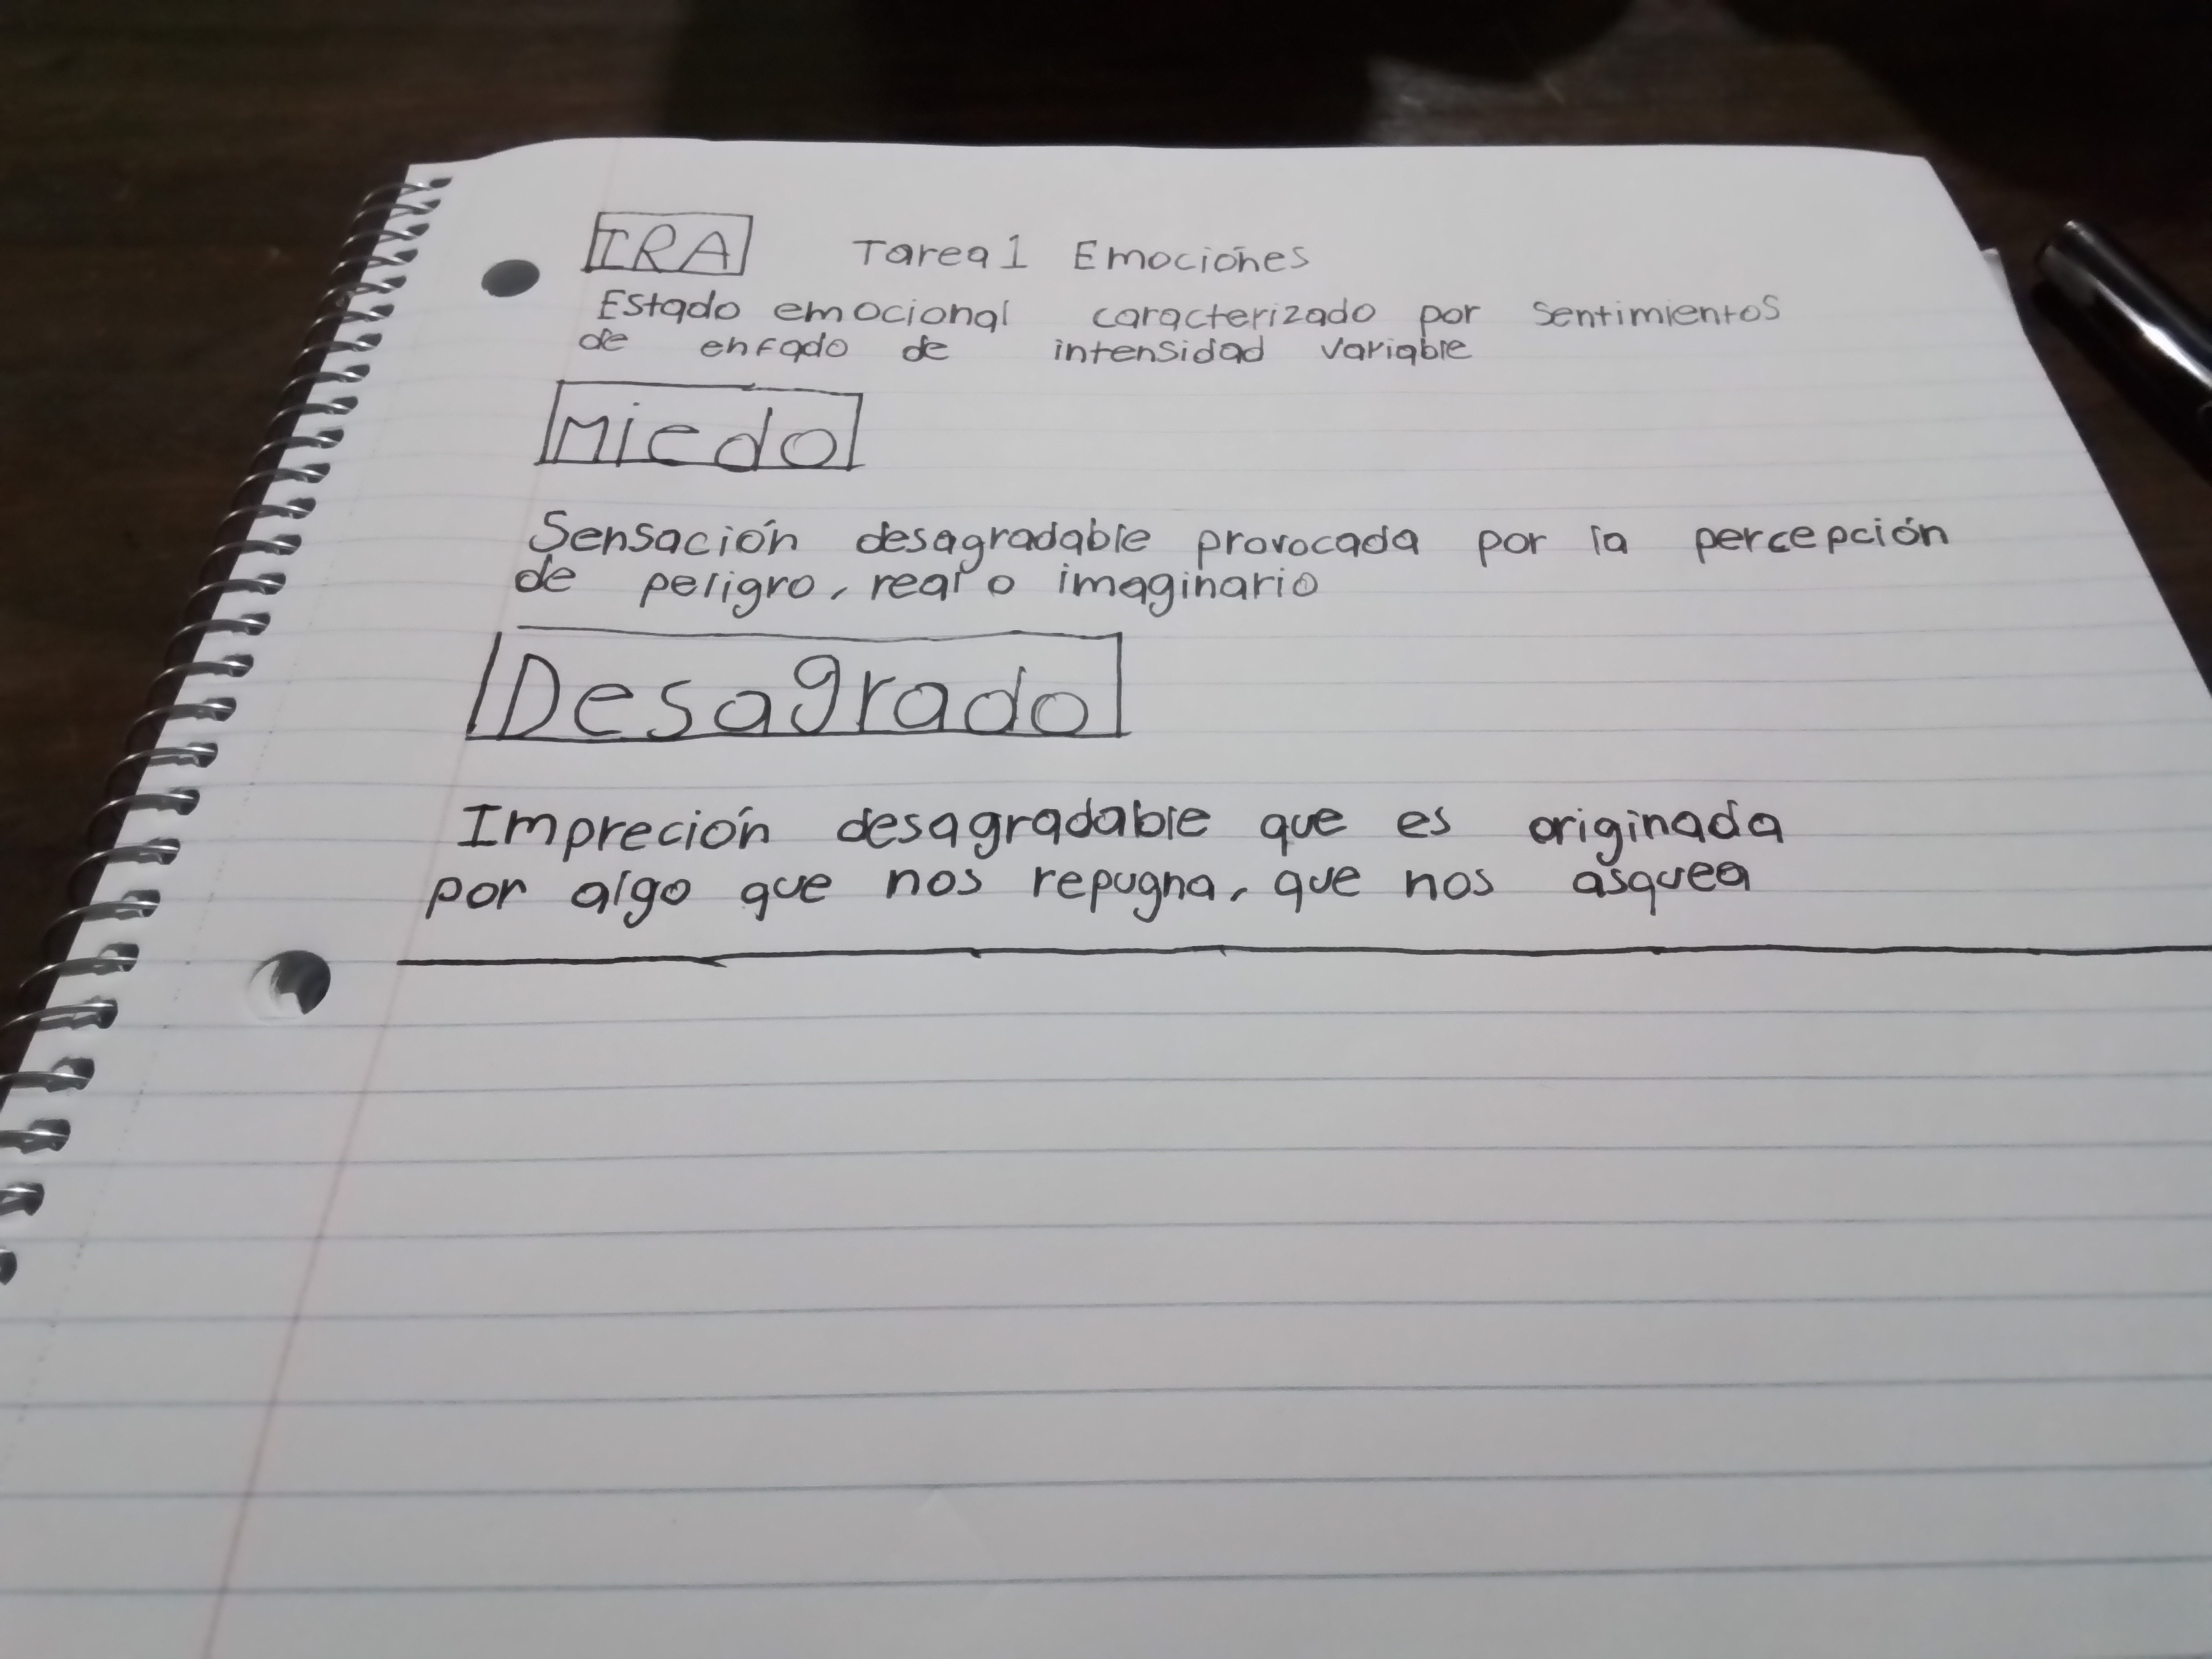 IRA Tarea 1 Emociónes
Estado emocional caracterizado por sentimientos
de enfado de intensidad variable
Miedo
Sensación desagradable provocada por la percepción
de peligro, real o imaginario
Desagrado
Impreción desagradable que es originada
por algo que nos repugna, que nos asquea